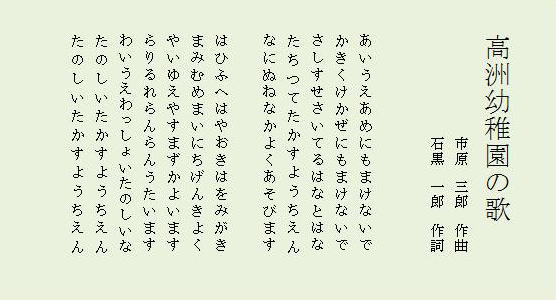 高洲幼稚園の歌
市原　三郎　作曲
石黒　一郎　作詞
あいうえあめにもまけないで
かきくけかぜにもまけないで
さしすせさいてるはなとはな
たちつてたかすようちえん
なにぬねなかよくあそびます
はひふへはやおきはをみがき
まみむめまいにちげんきよく
やいゆえやすまずかよいます
らりるれらんらんうたいます
わいうえわっしょいたのしいな
たのしいたかすようちえん
たのしいたかすようちえん